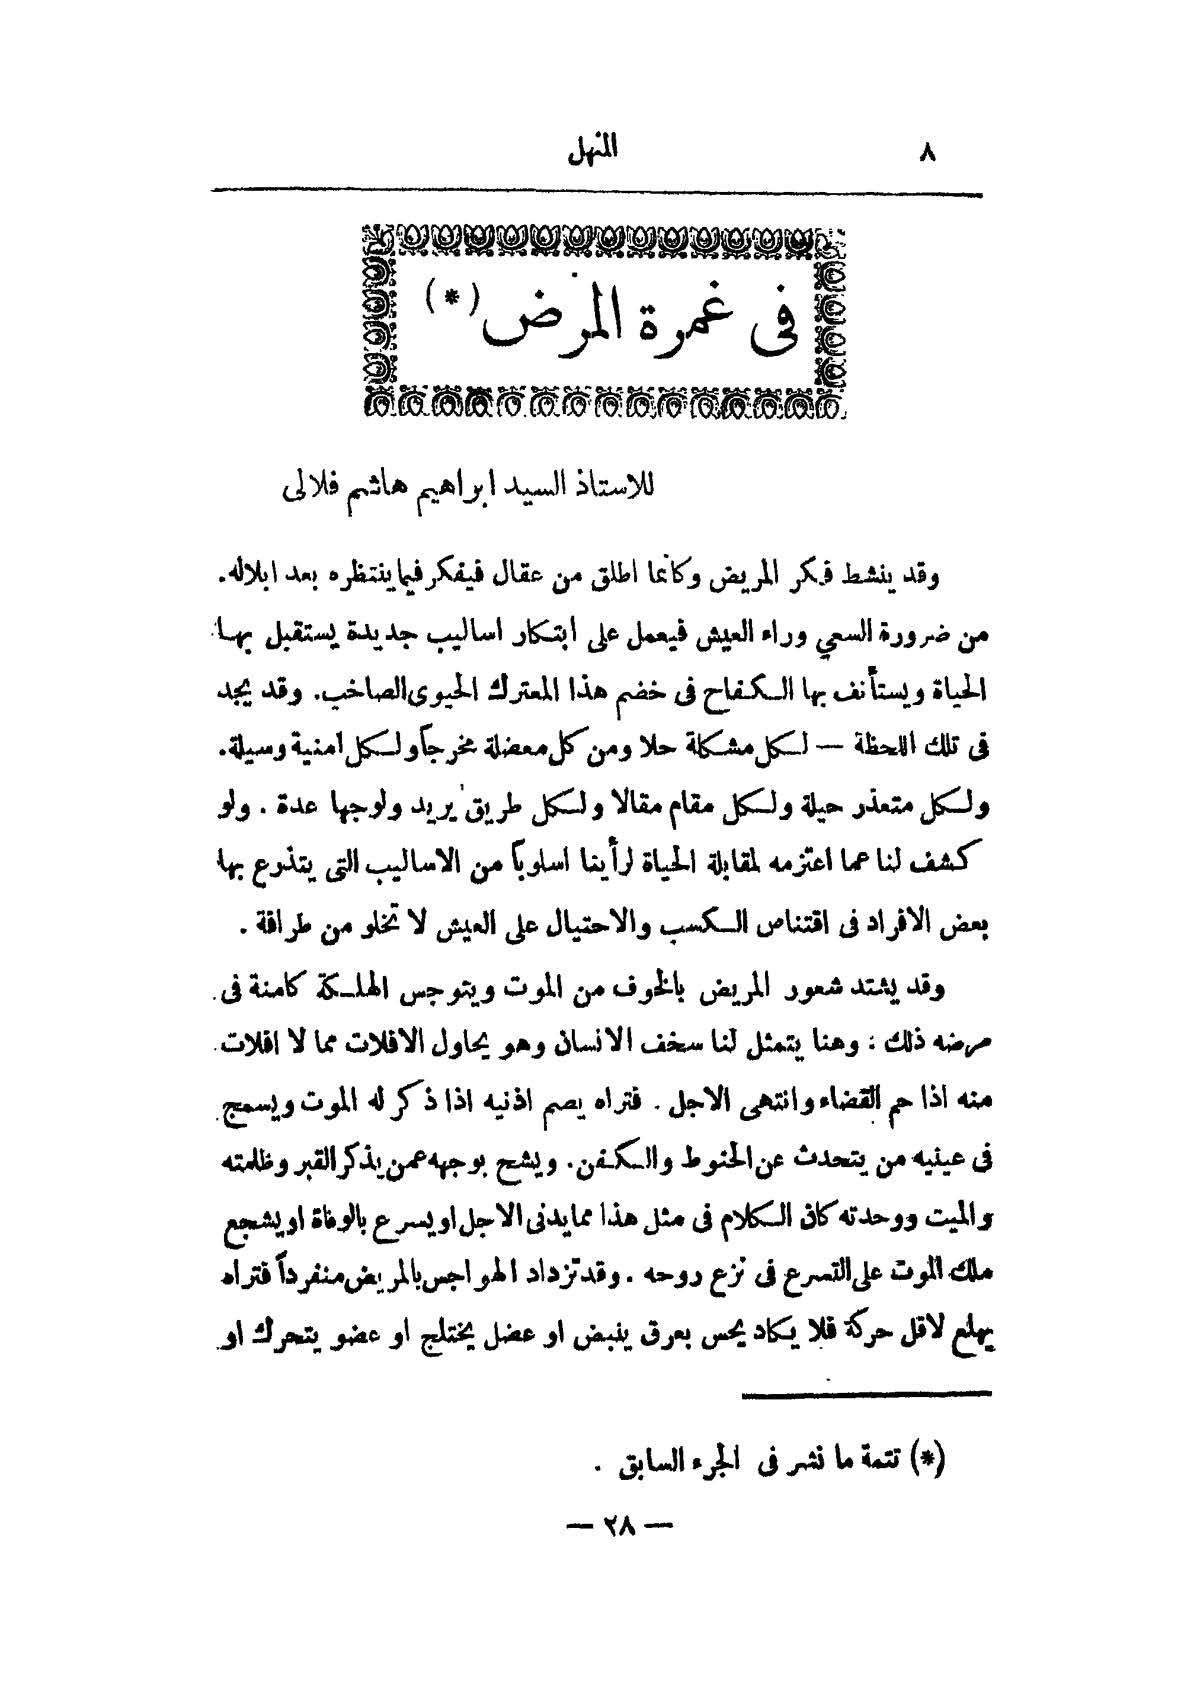 ٨ المنهل
فى غمرة المرض (*)
للاستاذ السيد ابراهيم هاشم فلالى
وقد ينشط فكر المريض وكانما اطلق من عقال فيفكر فيما ينتظره بعد ابلاله.
من ضرورة السعي وراء العيش فيعمل على ابتكار اساليب جديدة يستقبل بها
الحياة ويستأنف بها الكفاح فى خضم هذا المعترك الحيوى الصاخب. وقد يجد
فى تلك اللحظة — لكل مشكلة حلا ومن كل معضلة مخرجاً ولكل امنية وسيلة.
ولكل متعذر حيلة ولكل مقام مقالا ولكل طريق يريد ولوجها عدة . ولو
كشف لنا عما اعتزمه لمقابلة الحياة لرأينا اسلوباً من الاساليب التى يتذرع بها
بعض الافراد فى اقتناص الكسب والاحتيال على العيش لا تخلو من طرافة .
وقد يشتد شعور المريض بالخوف من الموت ويتوجس الهلكة كامنة فى
مرضه ذلك : وهنا يتمثل لنا سخف الانسان وهو يحاول الافلات مما لا افلات
منه اذا حم القضاء وانتهى الاجل . فتراه يصم اذنيه اذا ذكر له الموت ويسمج
فى عينيه من يتحدث عن الحنوط والكفن. ويشح بوجهه عمن يذكر القبر وظلمته
والميت ووحدته كان الكلام فى مثل هذا مما يدنى الاجل او يسرع بالوفاة او يشجع
ملك الموت على التسرع فى نزع روحه . وقد تزداد الهواجس بالمريض منفرداً فتراه
يهلع لاقل حركة فلا يكاد يحس بعرق ينبض او عضل يختلج او عضو يتحرك او
(*) تتمة ما نشر فى الجزء السابق .
— ٢٨ —